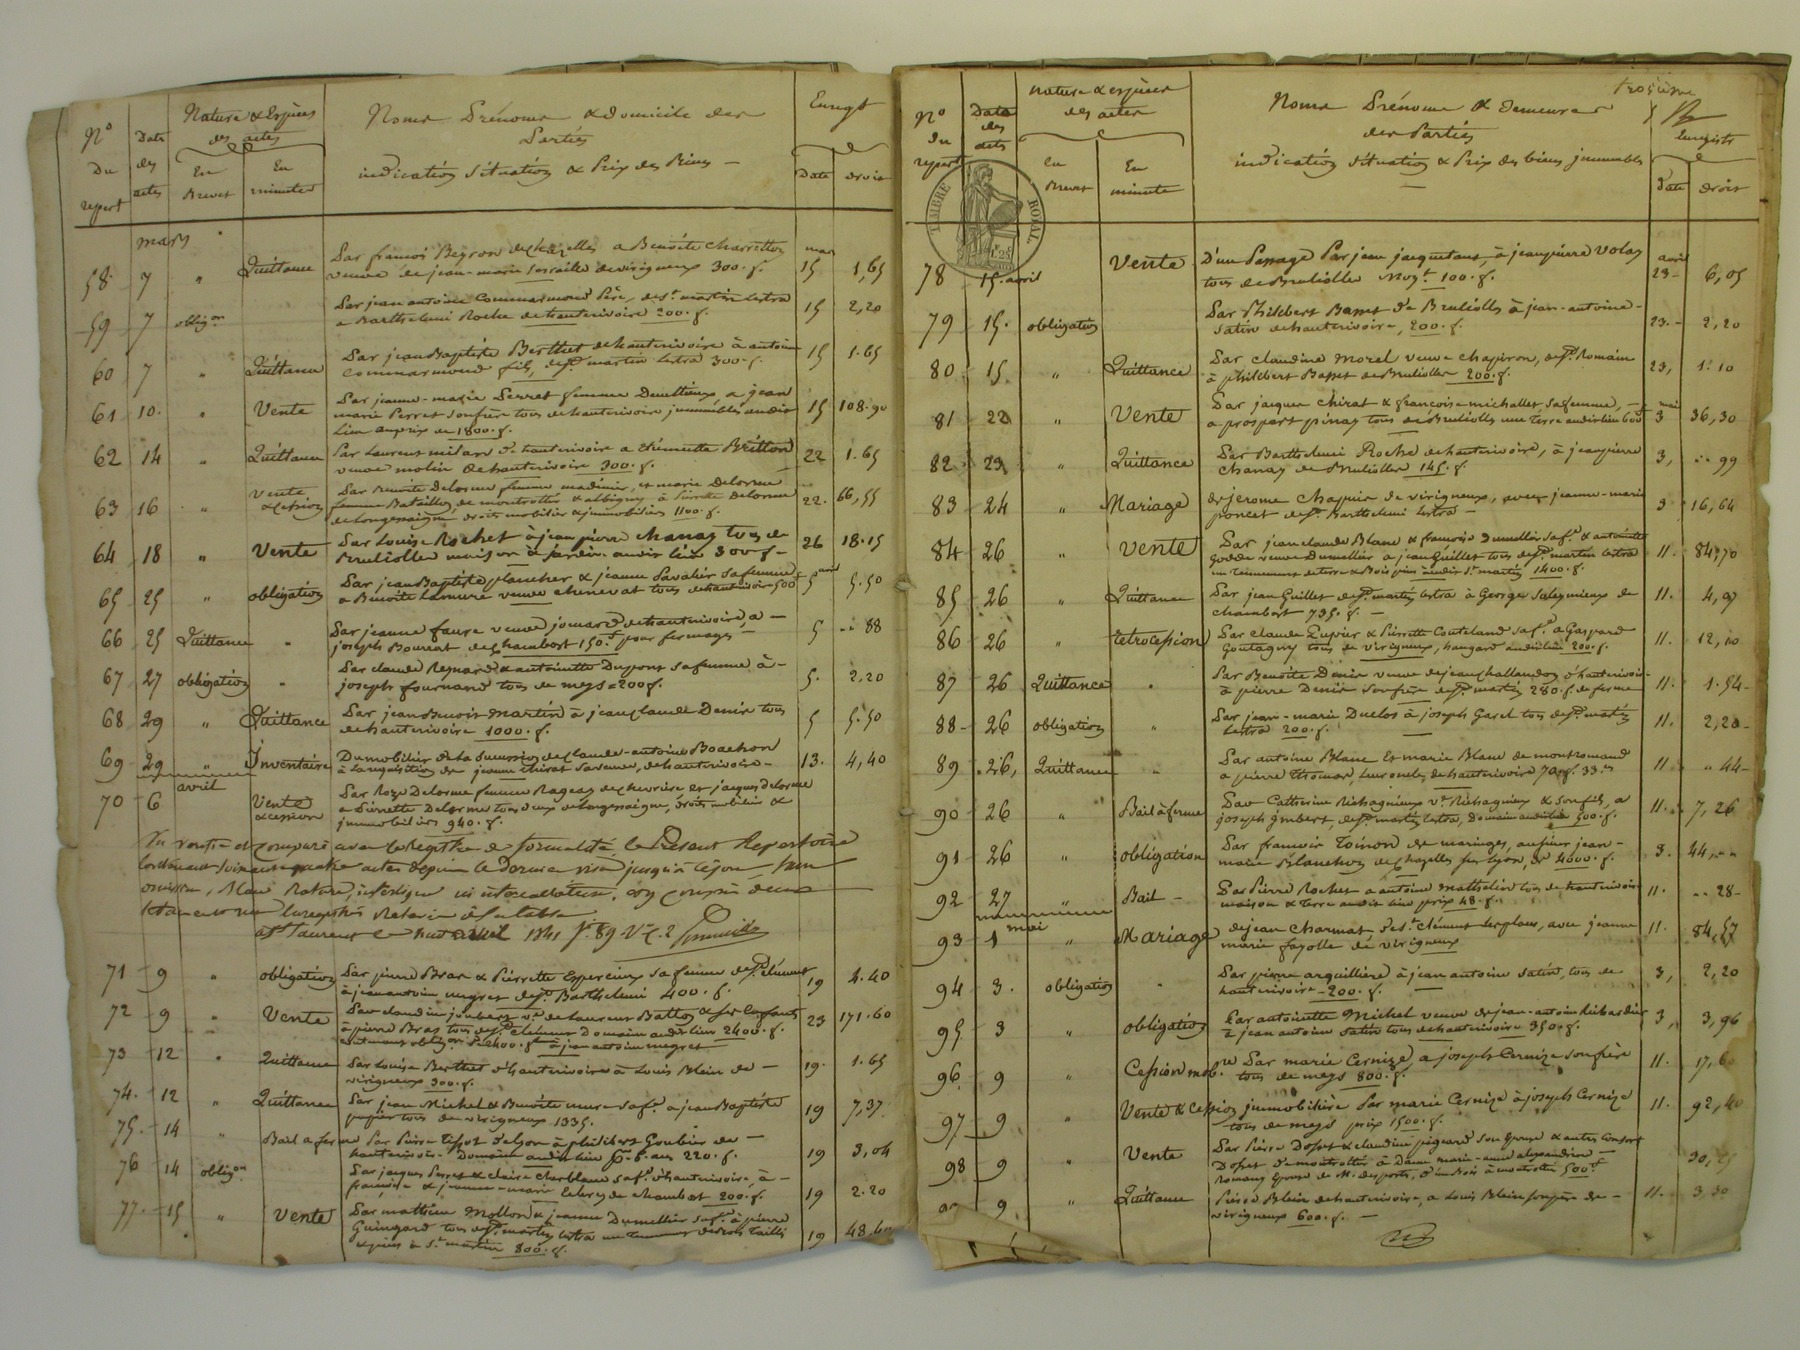 N° Du repert
Date des actes
Nature & Espèces des actes
En Brevet
En minutes
Noms Prénoms & domicile des Parties
indication situation & Prix des Biens
Enregt
Date droit
mars
58 7 " Quittance Par françois Peyron de chazelles a Benoite Charretton
veuve de jean-marie de virigneux 300. f. mars 15 1,65
59 7 oblig.on Par jean antoine Commarmond Père, de St martin lestra
a Barthelemi Roche de hauterivoire 200. f. 15 2,20
60 7 " Quittance Par jean Baptiste Berthet de hauterivoire à antoine
Commarmond fils, de St martin lestra 300. f. 15 1.65
61 10. " Vente Par jeanne-marie Perret femme a jean
marie Perret son frère tous de hauterivoire immeubles audit
lieu au prix de 1800. f. 15 108.90
62 14 " Quittance Par Laurent milan d'hauterivoire a Etiennette
veuve molin de hauterivoire 300. f. 22 1.65
63 16 " Vente & cession Par Benoite Delorme femme et marie Delorme
femme Bataillon, de montrottier & albigny à Pierrette Delorme
de longessaigne droits mobiliers & immobiliers 1100. f. 22. 66,55
64 18 " Vente Par Louise Rochet à jean pierre Chanay tous de
Brullioles maison & jardin audit lieu 300 f. 26 18.15
65 25 " obligation Par jean Baptiste plancher & jeanne sa femme
a Benoite veuve chenevat tous de hauterivoire 500 f 5 avril 5.50
66 25 Quittance " Par jeanne faure veuve jomard de hauterivoire, a
joseph de chambost 150 f pour fermages 5 " 88
67 27 obligation " Par claude Reynard & antoinette Dupont sa femme à
joseph fournand tous de meys = 200 f. 5. 2.20
68 29 " Quittance Par jean Benoit Martin à jean claude Denis tous
de hauterivoire 1000. f. 5 5.50
69 29 " Inventaire Du mobilier de la succession de claude-antoine
à la requisition de jeanne thivat sa veuve, de hauterivoire 13. 4,40
avril
70 6 Vente & cession Par Roze Delorme femme de chevrières et jacques delorme
a Pierrette Delorme tous deux de longessaigne, droits mobiliers &
immobiliers 940. f.
Vu verifié et comparé avec le Registre de formalité le Présent Repertoire
contenant soixante quatre actes depuis le dernier visa jusqu'à ce jour, sans
omission, blanc, rature, interligne ni intercallation,
Enregistrés
a St Laurent le huit avril 1841 f° 89 V° c. 2
71 9 " obligation Par pierre Bras & Pierrette sa femme de St clement
à jean antoine de St Barthelemi 400. f. 19 4.40
72 9 " Vente Par claudine joubert ve de Laurent & ses Enfants
à pierre Bras tous de St clement Domaine audit lieu 2400. f. 23 171.60
73 12 " Quittance Par Louise Berthet d'hauterivoire à Louis Blein de
virigneux 300. f. 19. 1.65
74. 12 " Quittance Par jean Michel & Benoite sa fe a jean Baptiste
tous de virigneux 1335. 19 7,37
75. 14 " Bail a ferme Par Pierre de Lyon à philibert Goubier de
hauterivoire Domaine audit lieu 220. f. 19 3,04
76 14 oblig.on Par jacques & claire sa fe d'hauterivoire, à
françoise & jeanne-marie de chambost 200. f. 19 2.20
77. 15 " Vente Par mathieu Mollon & jeanne Dumellier sa fe à pierre
tous de St martin lestra
à St martin 800. f. 19 48.40
troisième
N° du repert
Date des acts
nature & espèces des actes
En Brevet
En minute
Noms Prénoms & demeures des Parties
indication situation & Prix des biens immeubles
Enregistr
Date droit
TIMBRE ROYAL.
1F.25
78 15. avril Vente D'un Passage Par jean jacquetant à jean pierre Volay
tous de Brullioles Moyt 100. f. avril 23 6,05
79 15. obligation Par Philibert Basset de Brullioles à jean-antoine
Satin de hauterivoire, 200. f. 23. 2,20
80 15 " Quittance Par claudine Morel veuve chapiron, de St Romain
à philibert Basset de Brullioles 200. f. 23, 1.10
81 22 " Vente Par jacques chirat & françoise michallet sa femme,
a prospert pinay tous de Brullioles une terre audit lieu 600 f mai 3 36,30
82 23 " Quittance Par Barthelemi Roche de hauterivoire, à jean pierre
Chanay de Brullioles 145. f. 3, " 99
83 24 " Mariage de jerome Chapuis de virigneux, avec jeanne-marie
poncet de St Barthelemi lestra 3 16,64
84 26 " Vente Par jean claude Blanc & françoise Dumellier sa fe & antoinette
veuve Dumellier a jean Guillet tous de St martin lestra
un tennement de terre & Bois pins audit St martin 1400. f. 11. 84,70
85 26 " Quittance Par jean Guillet de St martin lestra à George de
chambost 735. f. 11. 4,07
86 26 " retrocession Par claude & Pierrette Couteland sa fe a Gaspard
Goutagny tous de virigneux, hangard audit lieu 200. f. 11. 12,10
87 26 Quittance " Par Benoite Denis veuve de jean d'hauterivoire
à pierre Denis son frère de St martin 280. f. de ferme 11. 1.54
88 26 obligation " Par jean-marie Duclos à joseph Garel tous de St martin
lestra 200. f. 11. 2,20
89 26, Quittance " Par antoine Blanc Et marie Blanc de montromand
a pierre leur oncle, de hauterivoire 70. f. 33. cs 11 " 44
90 26 " Bail à ferme Par Catherine ve & son fils, a
joseph imbert, de St martin lestra, Domaine audit lieu 900. f. 11. 7,26
91 26 " obligation Par françois Toinon de maringes, au sieur jean-
marie Blanchon de chazelles sur lyon, de 4000. f. 3. 44,
92 27 " Bail Par Pierre Rochet a antoine tous de hauterivoire
maison & terre audit lieu prix 48. f. 11. " 28
mai
93 1 " Mariage de jean charmat de St clément les places, avec jeanne
marie fayolle de virigneux 11. 84,57
94 3. obligation " Par pierre arquillière à jean antoine Satin, tous de
hauterivoire 200. f. 3, 2,20
95 3 " obligation Par antoinette Michel veuve de jean-antoine
à jean antoine Satin tous de hauterivoire 350. f. 3, 3,96
96 9 " Cession mob.re Par marie Cernize, a joseph Cernize son frère
tous de meys 800. f. 11. 17,60
97 9 " Vente & Cession immobilière Par marie Cernize à joseph Cernize
tous de meys prix 1500. f. 11. 92,40
98 9 " Vente Par Pierre & claudine pigeard son Epouse & autres consorts
de montrottier à Dame marie-anne alexandrine
Epouse de M. desportes, d'un Bois à montrottier 500 f 30,25
9 " Quittance Pierre Blein de hauterivoire, a Louis Blein son père de
virigneux 600. f. 11. 3,30